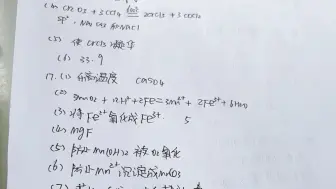 (1) Cr2O3 + 3CCl4 ══ 2CrCl3 + 3COCl2
sp³, Na2CO3 和 NaCl
(5) 使 CrCl3 凝华
(6) 33.9
17. (1) 分解温度 CaSO4
(2) 3MnO2 + 12H⁺ + 2Fe = 3Mn²⁺ + 2Fe³⁺ + 6H2O
(3) 将 Fe²⁺ 氧化成 Fe³⁺ 5
(4) MgF
(5) 防止 Mn(OH)2 被 O2 氧化
(6) 防止 Mn²⁺ 沉淀成 MnCO3
(7)